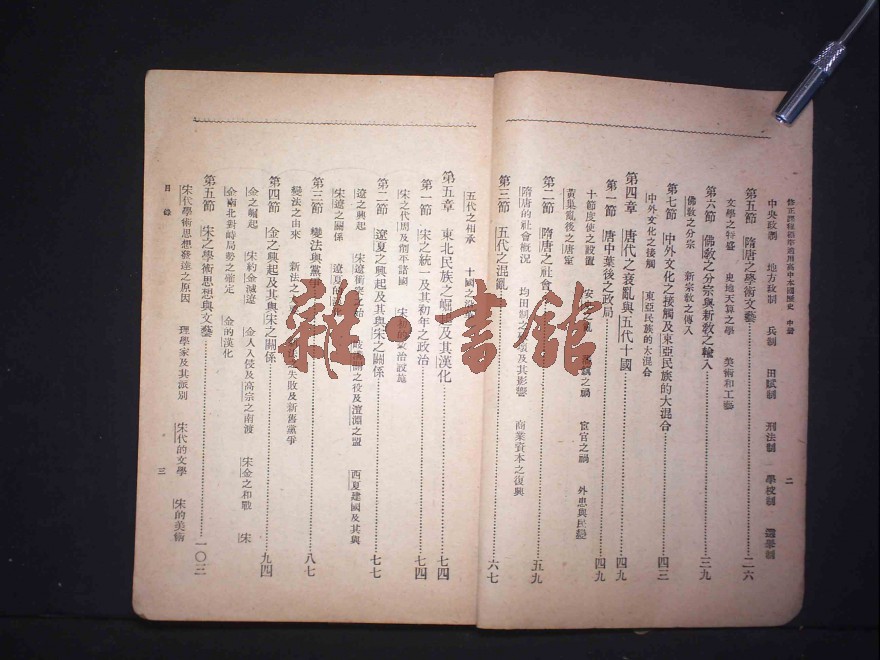 修正課程標準適用高中本國歷史 中册
二
中央政制 地方政制 兵制 田賦制 刑法制 學校制 選舉制
第五節 隋唐之學術文藝 二六
文學之特盛 史地天算之學 美術和工藝
第六節 佛教之分宗與新教之輸入 三九
佛教之分宗 新宗教之傳入
第七節 中外文化之接觸及東亞民族的大混合 四三
中外文化之接觸 東亞民族的大混合
第四章 唐代之衰亂與五代十國 四九
第一節 唐中葉後之政局 四九
十節度使之設置 宦官之禍 外患與民變
黃巢亂後之唐室
第二節 隋唐之社會 五九
隋唐的社會概況 均田制之及其影響 商業資本之復興
第三節 五代之混亂 六七
五代之相承 十國之
第五章 東北民族之崛起及其漢化 七四
第一節 宋之統一及其初年之政治 七四
宋之代周及削平諸國 宋初的政治設施
第二節 遼夏之興起及其與宋之關係 七七
遼之興起 宋遼衝突之始 之役及澶淵之盟 西夏建國及其與
宋遼之關係 遼夏的
第三節 變法與黨爭 八七
變法之由來 新法之 之失敗及新舊黨爭
第四節 金之興起及其與宋之關係 九四
金之崛起 宋約金滅遼 金人入侵及高宗之南渡 宋金之和戰 宋
金南北對峙局勢之確定 金的漢化
第五節 宋之學術思想與文藝 一〇三
宋代學術思想發達之原因 理學家及其派別 宋代的文學 宋的美術
目錄
三
雜·書館